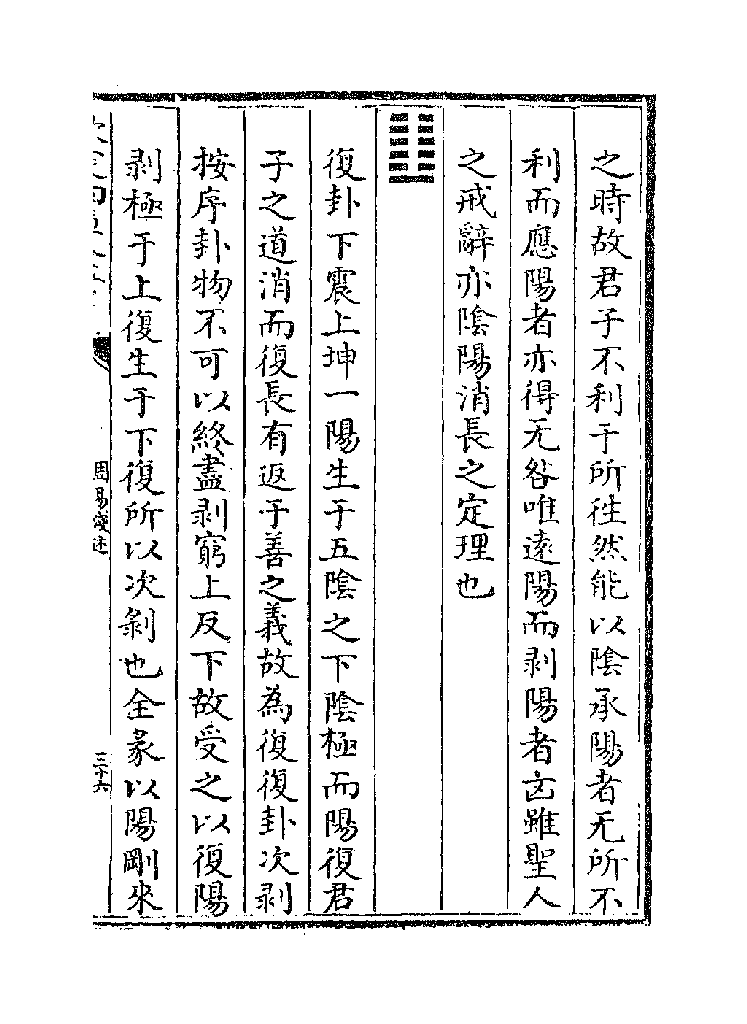 之時故君子不利于所往然能以陰承陽者无所不
利而應陽者亦得无咎唯遠陽而剥陽者凶雖聖人
之戒辭亦陰陽消長之定理也
䷗
復卦下震上坤一陽生于五陰之下陰極而陽復君
子之道消而復長有返于善之義故為復復卦次剥
按序卦物不可以終盡剥窮上反下故受之以復陽
剥極于上復生于下復所以次剥也全彖以陽剛來
周易淺述
三十六